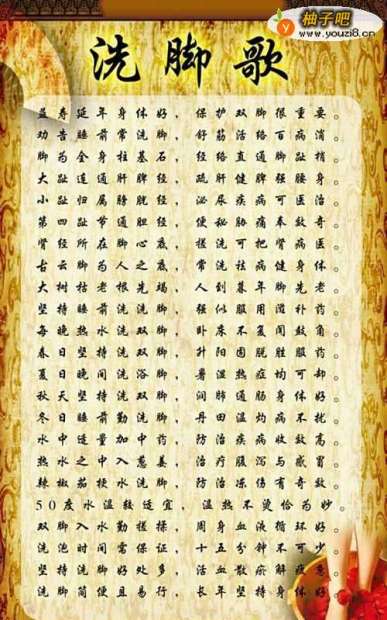 柚子吧
www.youzi8.cn
洗脚歌
益寿延年身体好，保护双脚很重要。
劝告睡前常洗脚，舒筋活络百病消
脚为全身柱基石，经络直通脚趾梢
大趾连通肝脾经，疏肝健脾强腰身
小趾归属膀胱经，泌尿疾病可医治
第四趾节通胆经，便秘胁痛奉效奇
肾经所在脚心底，搓洗可把肾病医
古云脚为人之底，常洗祛病健身体
大树枯老根先竭，人到暮年脚先老
坚持睡前洗洗脚，强似服用滋补药
每晚热水洗双脚，卧床不复闻鼓角
春日坚持洗双脚，升阳固脱胜服药
夏日晚间洗浴脚，暑湿热症均可却
秋天坚持洗双脚，润肺通肠身体好
冬日睡前勤洗脚，丹田温灼病不扰
水中适量加中药，防治疾病收效高
热水之中入葱姜，治疗腹泻与感冒
辣椒茄梗水洗脚，防治冻伤有奇效
50度水温较适宜，温热不烫恰为妙。
双脚入水勤搓揉，周身血液循环好
洗泡时间需保证，十五分钟不可少
坚持洗脚好处多，活血散瘀解疲惫
洗脚简便且易行，长年坚持身体好